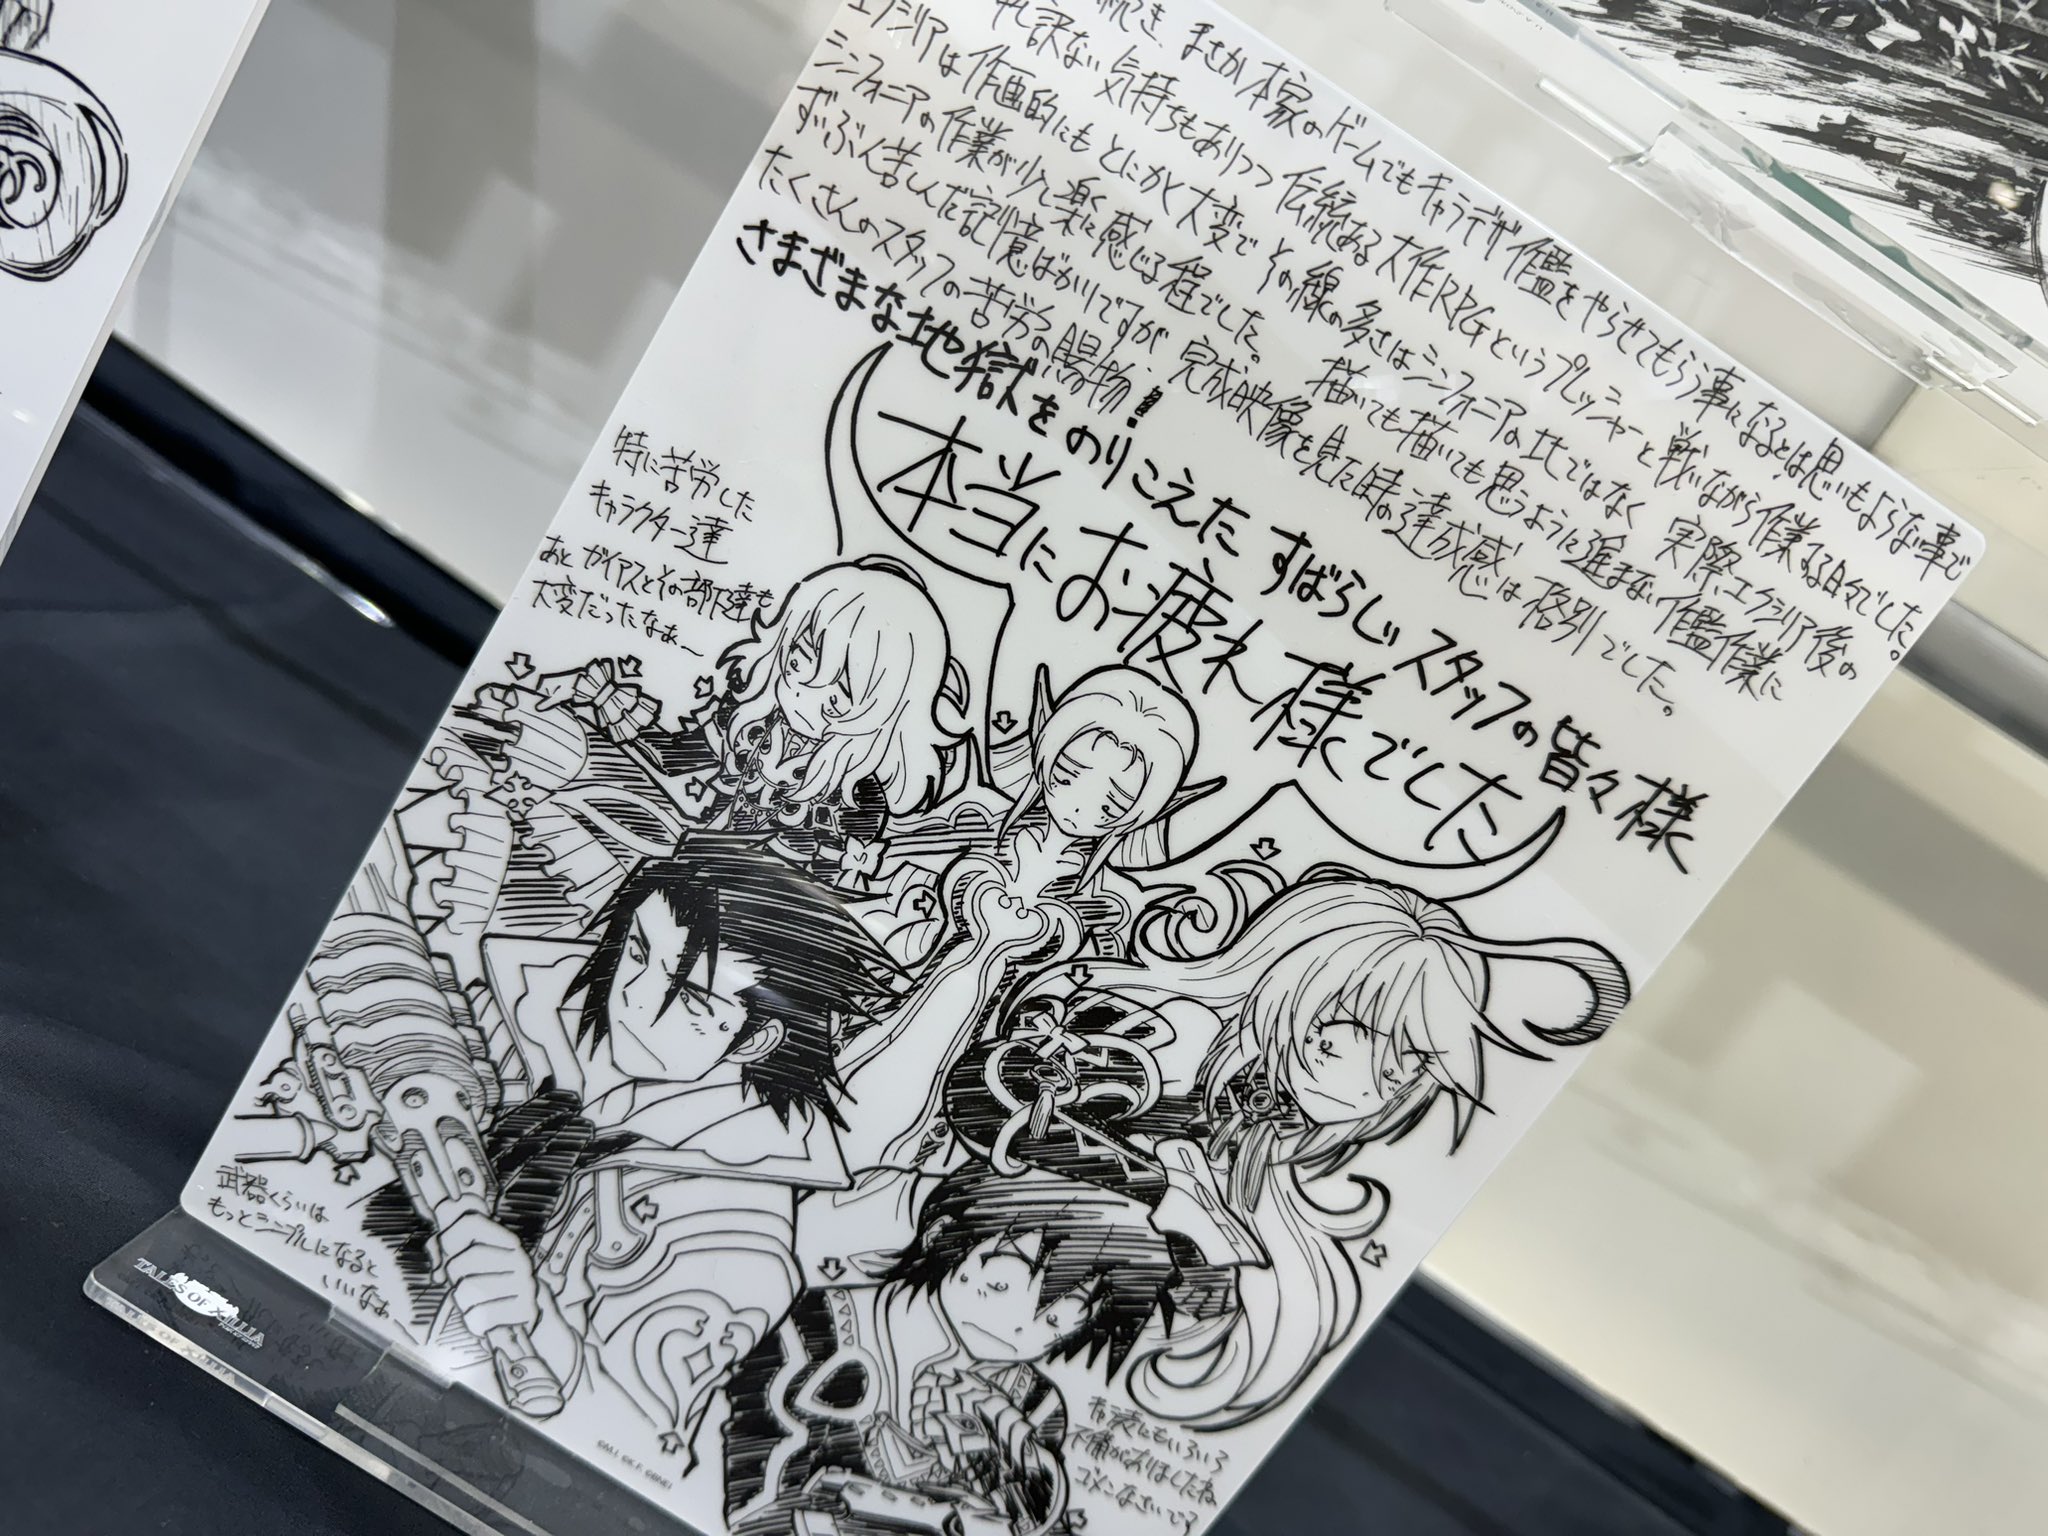 続き、まさか本家のゲームでもキャラデザ作監をやらせてもらう事になるとは思いもよらない事で
申し訳ない気持ちもありつつ 伝統ある大作RPGというプレッシャーと戦いながら作業する日々でした。
エクシリアは作画的にもとにかく大変で その線の多さはシンフォニアの比ではなく 実際、エクシリア後の
シンフォニアの作業が少し楽に感じる程でした。 描いても描いても思うように進まない作監作業に
ずいぶん苦しんだ記憶ばかりですが、完成映像を見た時の達成感は格別でした。
たくさんのスタッフの苦労の賜物!
さまざまな地獄をのりこえた すばらしい スタッフの皆々様
本当にお疲れ様でした
特に苦労した
キャラクター達
あと ガイアスとその部下達も
大変だったなぁ〜
武器くらいは
もっとシンプルになると
いいなぁ〜
キャラ表にもいろいろ
不備がありましたね
ゴメンなさいです
TALES OF XILLIA